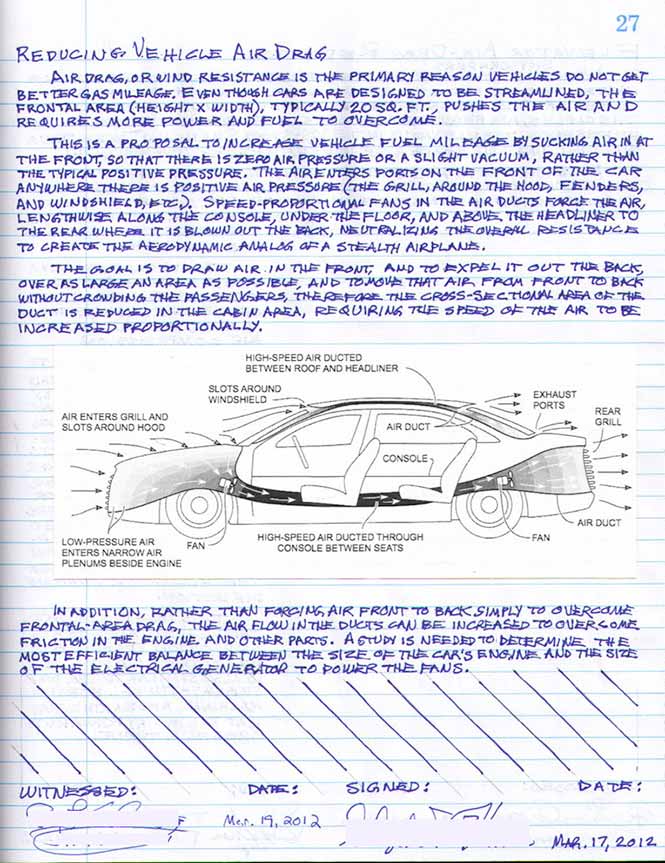 27
REDUCING VEHICLE AIR DRAG
AIR DRAG, OR WIND RESISTANCE IS THE PRIMARY REASON VEHICLES DO NOT GET
BETTER GAS MILEAGE. EVEN THOUGH CARS ARE DESIGNED TO BE STREAMLINED, THE
FRONTAL AREA (HEIGHT X WIDTH), TYPICALLY 20 SQ. FT., PUSHES THE AIR AND
REQUIRES MORE POWER AND FUEL TO OVERCOME.
THIS IS A PROPOSAL TO INCREASE VEHICLE FUEL MILEAGE BY SUCKING AIR IN AT
THE FRONT, SO THAT THERE IS ZERO AIR PRESSURE OR A SLIGHT VACUUM, RATHER THAN
THE TYPICAL POSITIVE PRESSURE. THE AIR ENTERS PORTS ON THE FRONT OF THE CAR
ANYWHERE THERE IS POSITIVE AIR PRESSURE (THE GRILL, AROUND THE HOOD, FENDERS,
AND WINDSHIELD, ETC.). SPEED-PROPORTIONAL FANS IN THE AIR DUCTS FORCE THE AIR,
LENGTHWISE ALONG THE CONSOLE, UNDER THE FLOOR, AND ABOVE THE HEADLINER TO
THE REAR WHERE IT IS BLOWN OUT THE BACK, NEUTRALIZING THE OVERALL RESISTANCE
TO CREATE THE AERODYNAMIC ANALOG OF A STEALTH AIRPLANE.
THE GOAL IS TO DRAW AIR IN THE FRONT, AND TO EXPEL IT OUT THE BACK,
OVER AS LARGE AN AREA AS POSSIBLE, AND TO MOVE THAT AIR FROM FRONT TO BACK
WITHOUT CROWDING THE PASSENGERS, THEREFORE THE CROSS-SECTIONAL AREA OF THE
DUCT IS REDUCED IN THE CABIN AREA, REQUIRING THE SPEED OF THE AIR TO BE
INCREASED PROPORTIONALLY.
HIGH-SPEED AIR DUCTED
BETWEEN ROOF AND HEADLINER
SLOTS AROUND
WINDSHIELD
EXHAUST
PORTS
AIR ENTERS GRILL AND
SLOTS AROUND HOOD
REAR
GRILL
AIR DUCT
CONSOLE
LOW-PRESSURE AIR
ENTERS NARROW AIR
PLENUMS BESIDE ENGINE
FAN
HIGH-SPEED AIR DUCTED THROUGH
CONSOLE BETWEEN SEATS
FAN
AIR DUCT
IN ADDITION, RATHER THAN FORCING AIR FRONT TO BACK SIMPLY TO OVERCOME
FRONTAL-AREA DRAG, THE AIR FLOW IN THE DUCTS CAN BE INCREASED TO OVERCOME
FRICTION IN THE ENGINE AND OTHER PARTS. A STUDY IS NEEDED TO DETERMINE THE
MOST EFFICIENT BALANCE BETWEEN THE SIZE OF THE CAR'S ENGINE AND THE SIZE
OF THE ELECTRICAL GENERATOR TO POWER THE FANS.
WITNESSED: DATE: SIGNED: DATE:
Mar. 19, 2012
MAR. 17, 2012